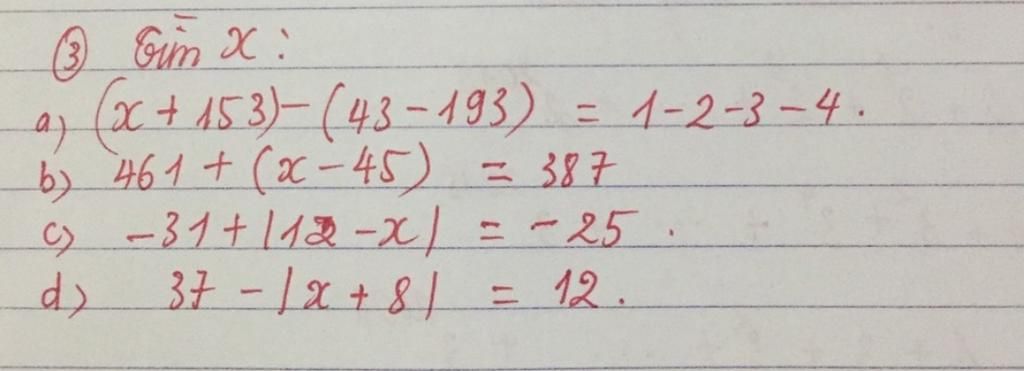 ③ Tìm x :
a) (x + 153) - (43 - 193) = 1 - 2 - 3 - 4.
b) 461 + (x - 45) = 387
c) -31 + |12 - x| = -25.
d) 37 - |x + 8| = 12.